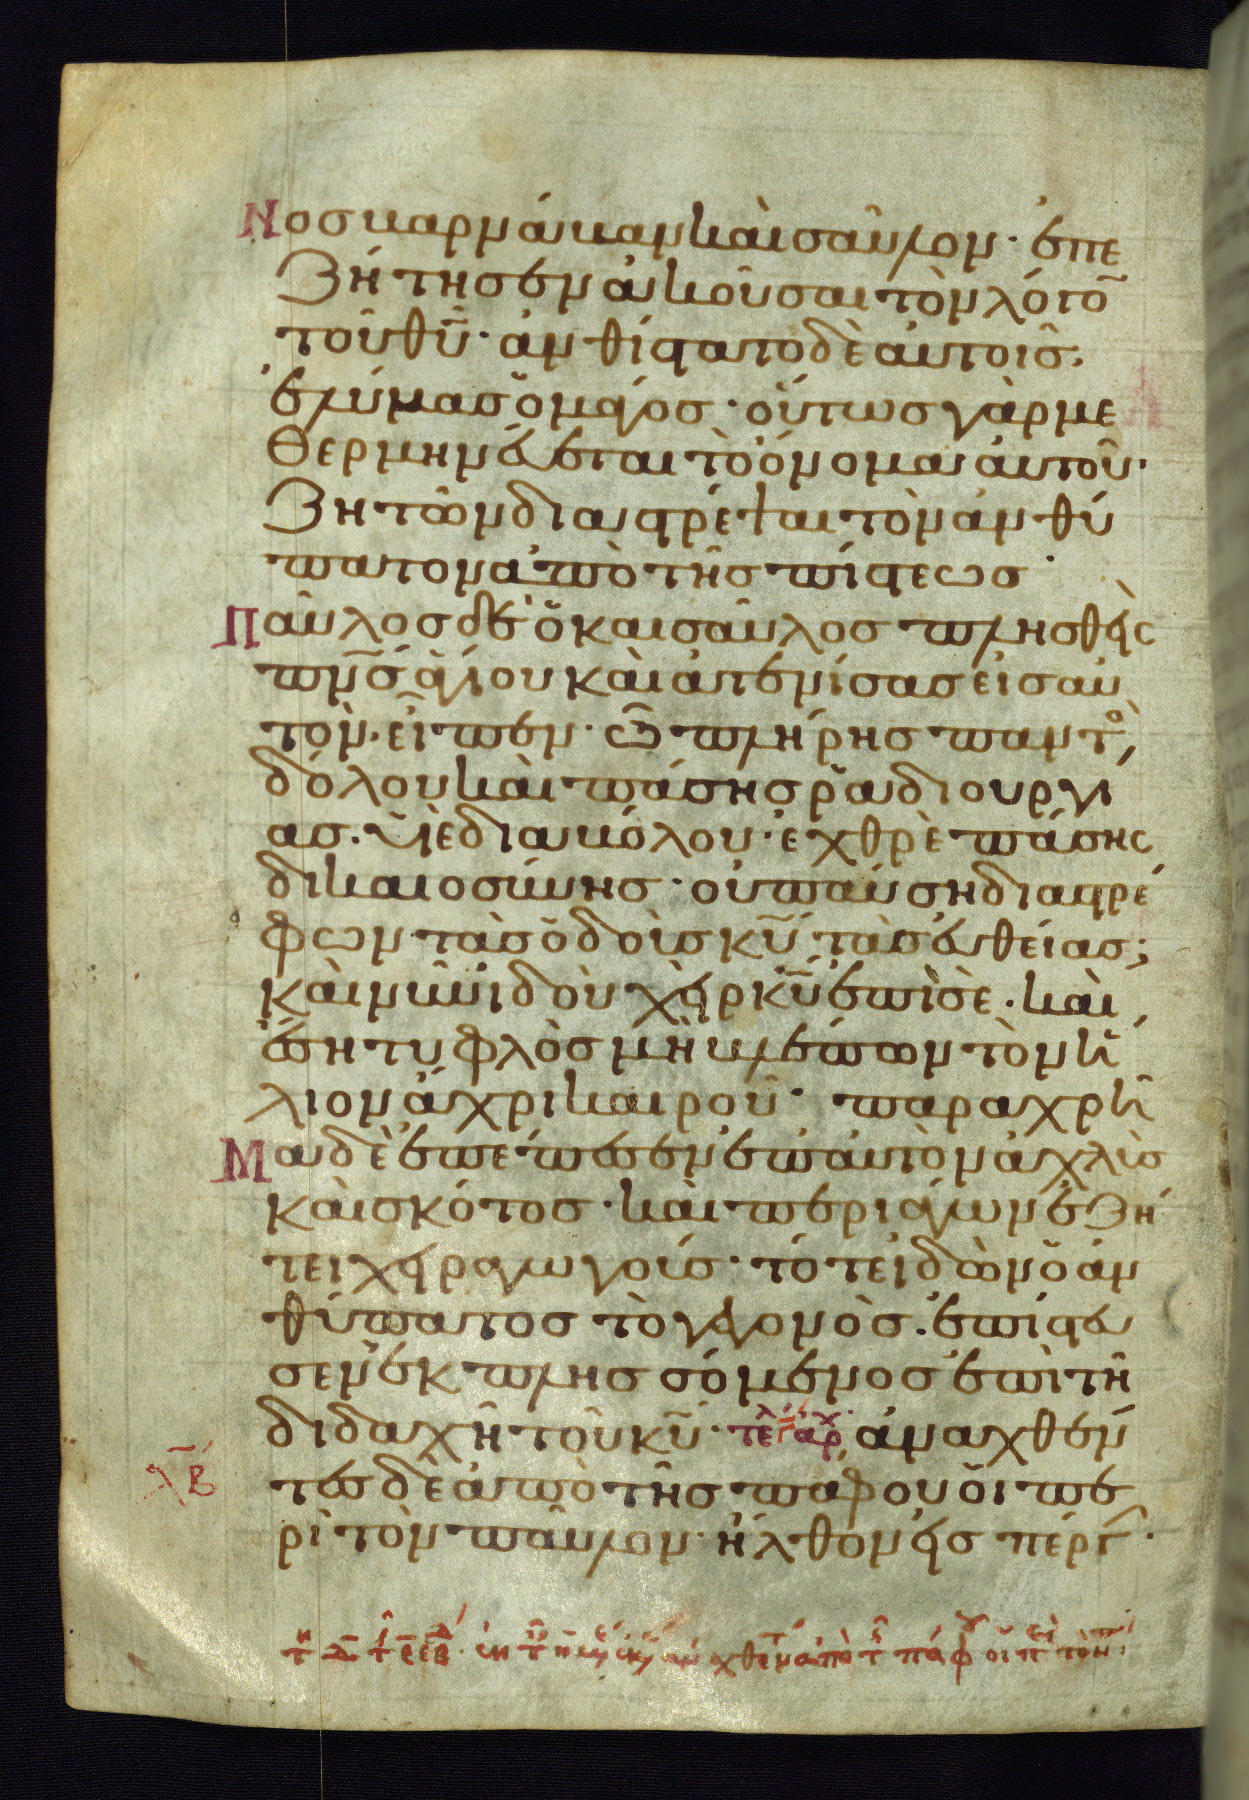 Νος βαρνάβαν καὶ σαῦλον· ἐπε
ζήτησεν ἀκοῦσαι τὸν λόγο̄
τοῦ θ̅υ̅· ἀνθίστατο δὲ αὐτοῖς·
ἐλύμας ὁ μάγος· οὕτως γὰρ με
θερμηνεύεται τὸ ὄνομα αὐτοῦ·
ζητῶν διαστρέψαι τὸν ἀνθύ
πατον ἀπὸ τῆς πίστεως·
Παῦλος δὲ ὁ καὶ σαῦλος πλησθεὶς
π̅ν̅ς̅ ἁγίου καὶ ἀτενίσας εἰς αὐ
τὸν· εἶπεν· ὦ πλήρης παντὸ
δόλου καὶ πάσης ῥαδιουργί
ας· υἱὲ διαβόλου· ἐχθρὲ πάσης
δικαιοσύνης· οὐ παύση διαστρέ
φων τὰς ὁδοὺς κ̅υ̅ τὰς εὐθείας;
καὶ νῦν ἰδοὺ χεὶρ κ̅υ̅ ἐπὶ σὲ· καὶ
ἔση τυφλὸς μὴ βλέπων τὸν ἥ
λιον ἄχρι καιροῦ· παραχρῆ
Μα δὲ ἐπέπεσεν ἐπ' αὐτὸν ἀχλὺς
καὶ σκότος· καὶ περιάγων ἐζή
τει χειραγωγούς· τότε ἰδὼν ὁ ἀν
θύπατος τὸ γεγονὸς· ἐπίστευ
σεν ἐκπλησσόμενος ἐπὶ τῆ
διδαχῆ τοῦ κ̅υ̅· τελ αρχ ἀναχθέν
λβ
τες δὲ ἀπὸ τῆς πάφου οἱ πε
ρὶ τὸν παῦλον· ἦλθον εἰς πέργ·
ἀπὸ τ πάφ οἱ π τὸν